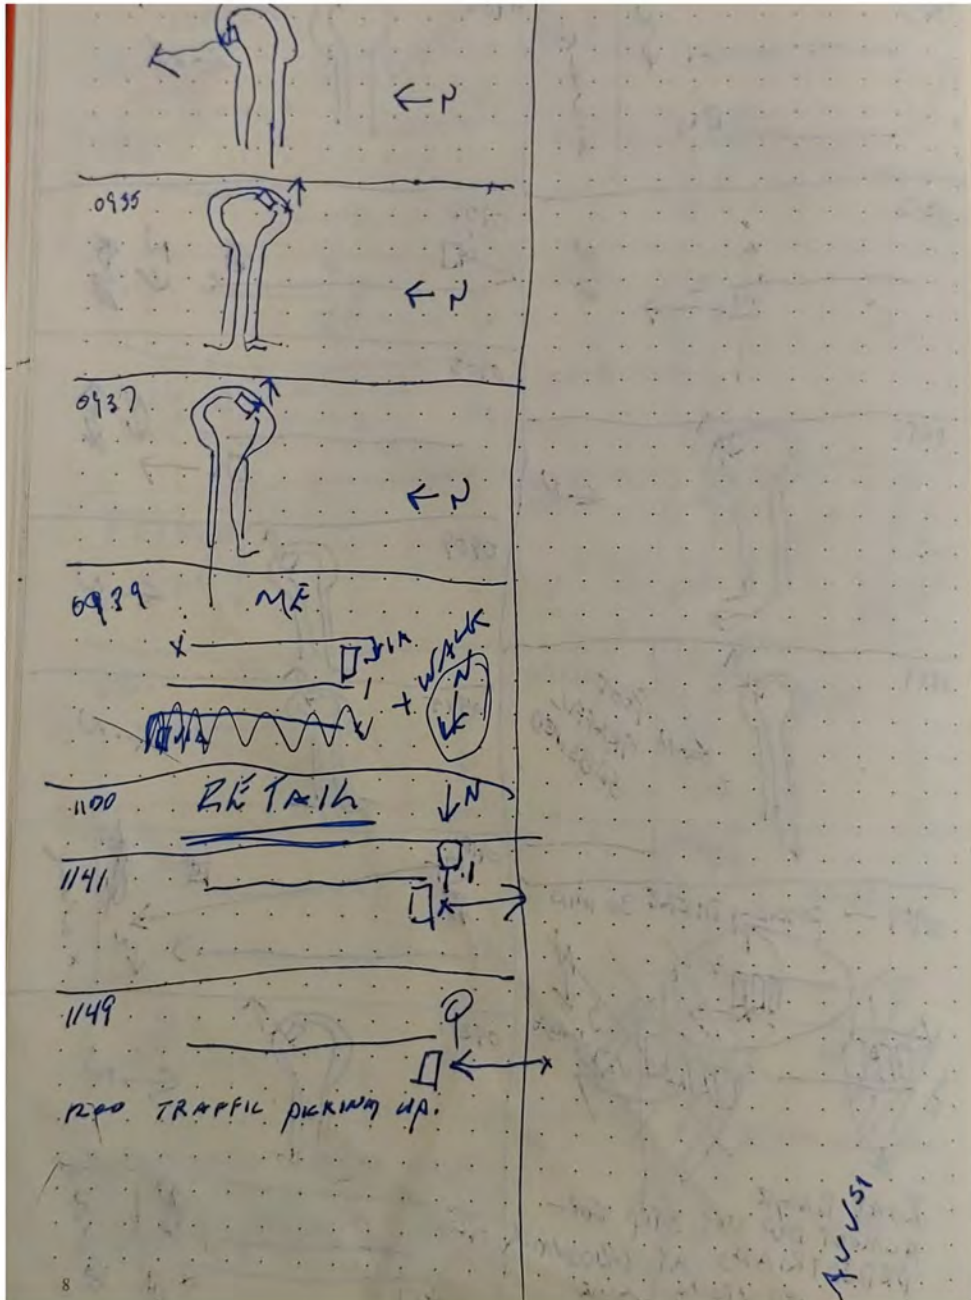 ← N
0935
← N
0937
← N
0939 ME
X
1
+ WALK
N
1100 RETAIL N
1141
1
X
1149
X
1200 TRAFFIC PICKING UP.
8